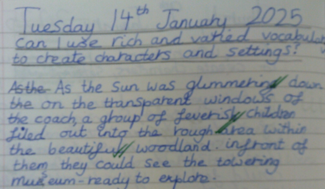 Tuesday 14th January 2025
Can I use rich and varied vocabulary
to create characters and settings?
As the As the sun was glummering down
the on the transparent windows of
the coach, a group of feverish children
filed out into the rough area within
the beautiful woodland. infront of
them they could see the towering
museum - ready to explore.